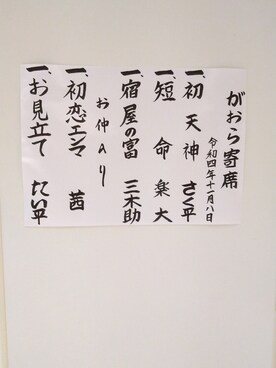 がおら寄席
令和四年十一月八日
一、初天神 さく平
一、短命 楽大
一、宿屋の富 三木助
お仲入り
一、初恋エンマ 茜
一、お見立て たい平